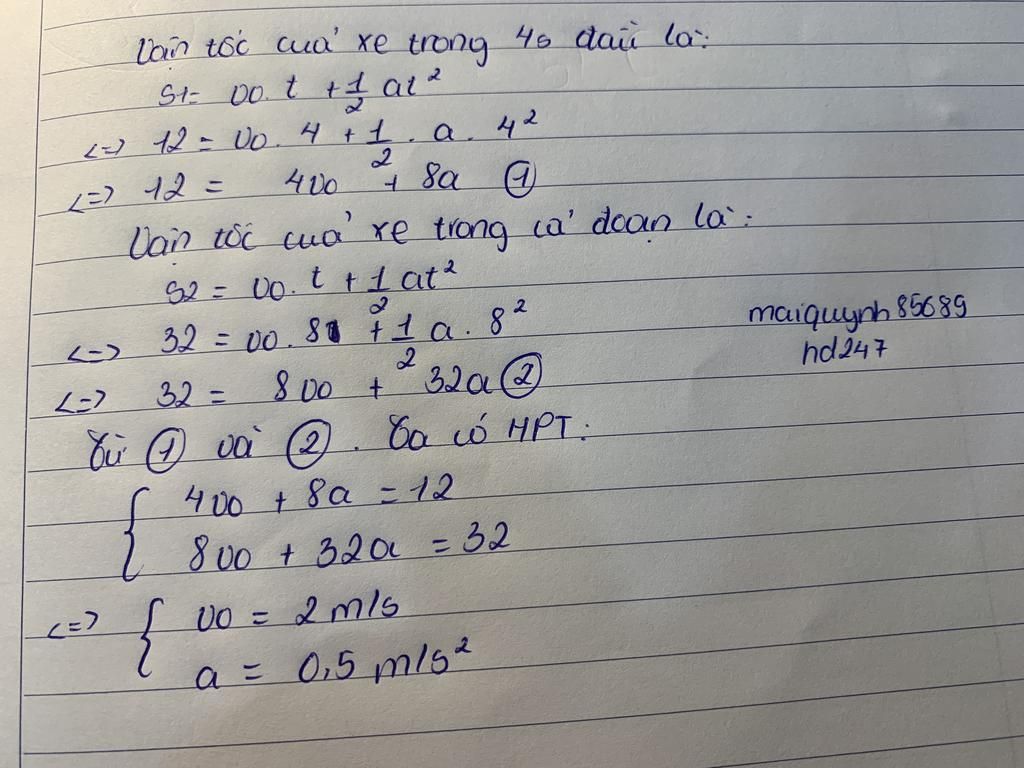 Vận tốc của xe trong 4s đầu là:
S1= v0.t + 1/2 at²
<=> 12 = v0. 4 + 1/2 . a . 4²
<=> 12 = 4v0 + 8a ①
Vận tốc của xe trong cả đoạn là:
S2 = v0.t + 1/2 at²
<=> 32 = v0. 8 + 1/2 a . 8²
maiquynh85689
<=> 32 = 8v0 + 32a ②
hd247
Từ ① và ②. Ta có HPT:
{ 4v0 + 8a = 12
8v0 + 32a = 32
<=> { v0 = 2 m/s
a = 0,5 m/s²